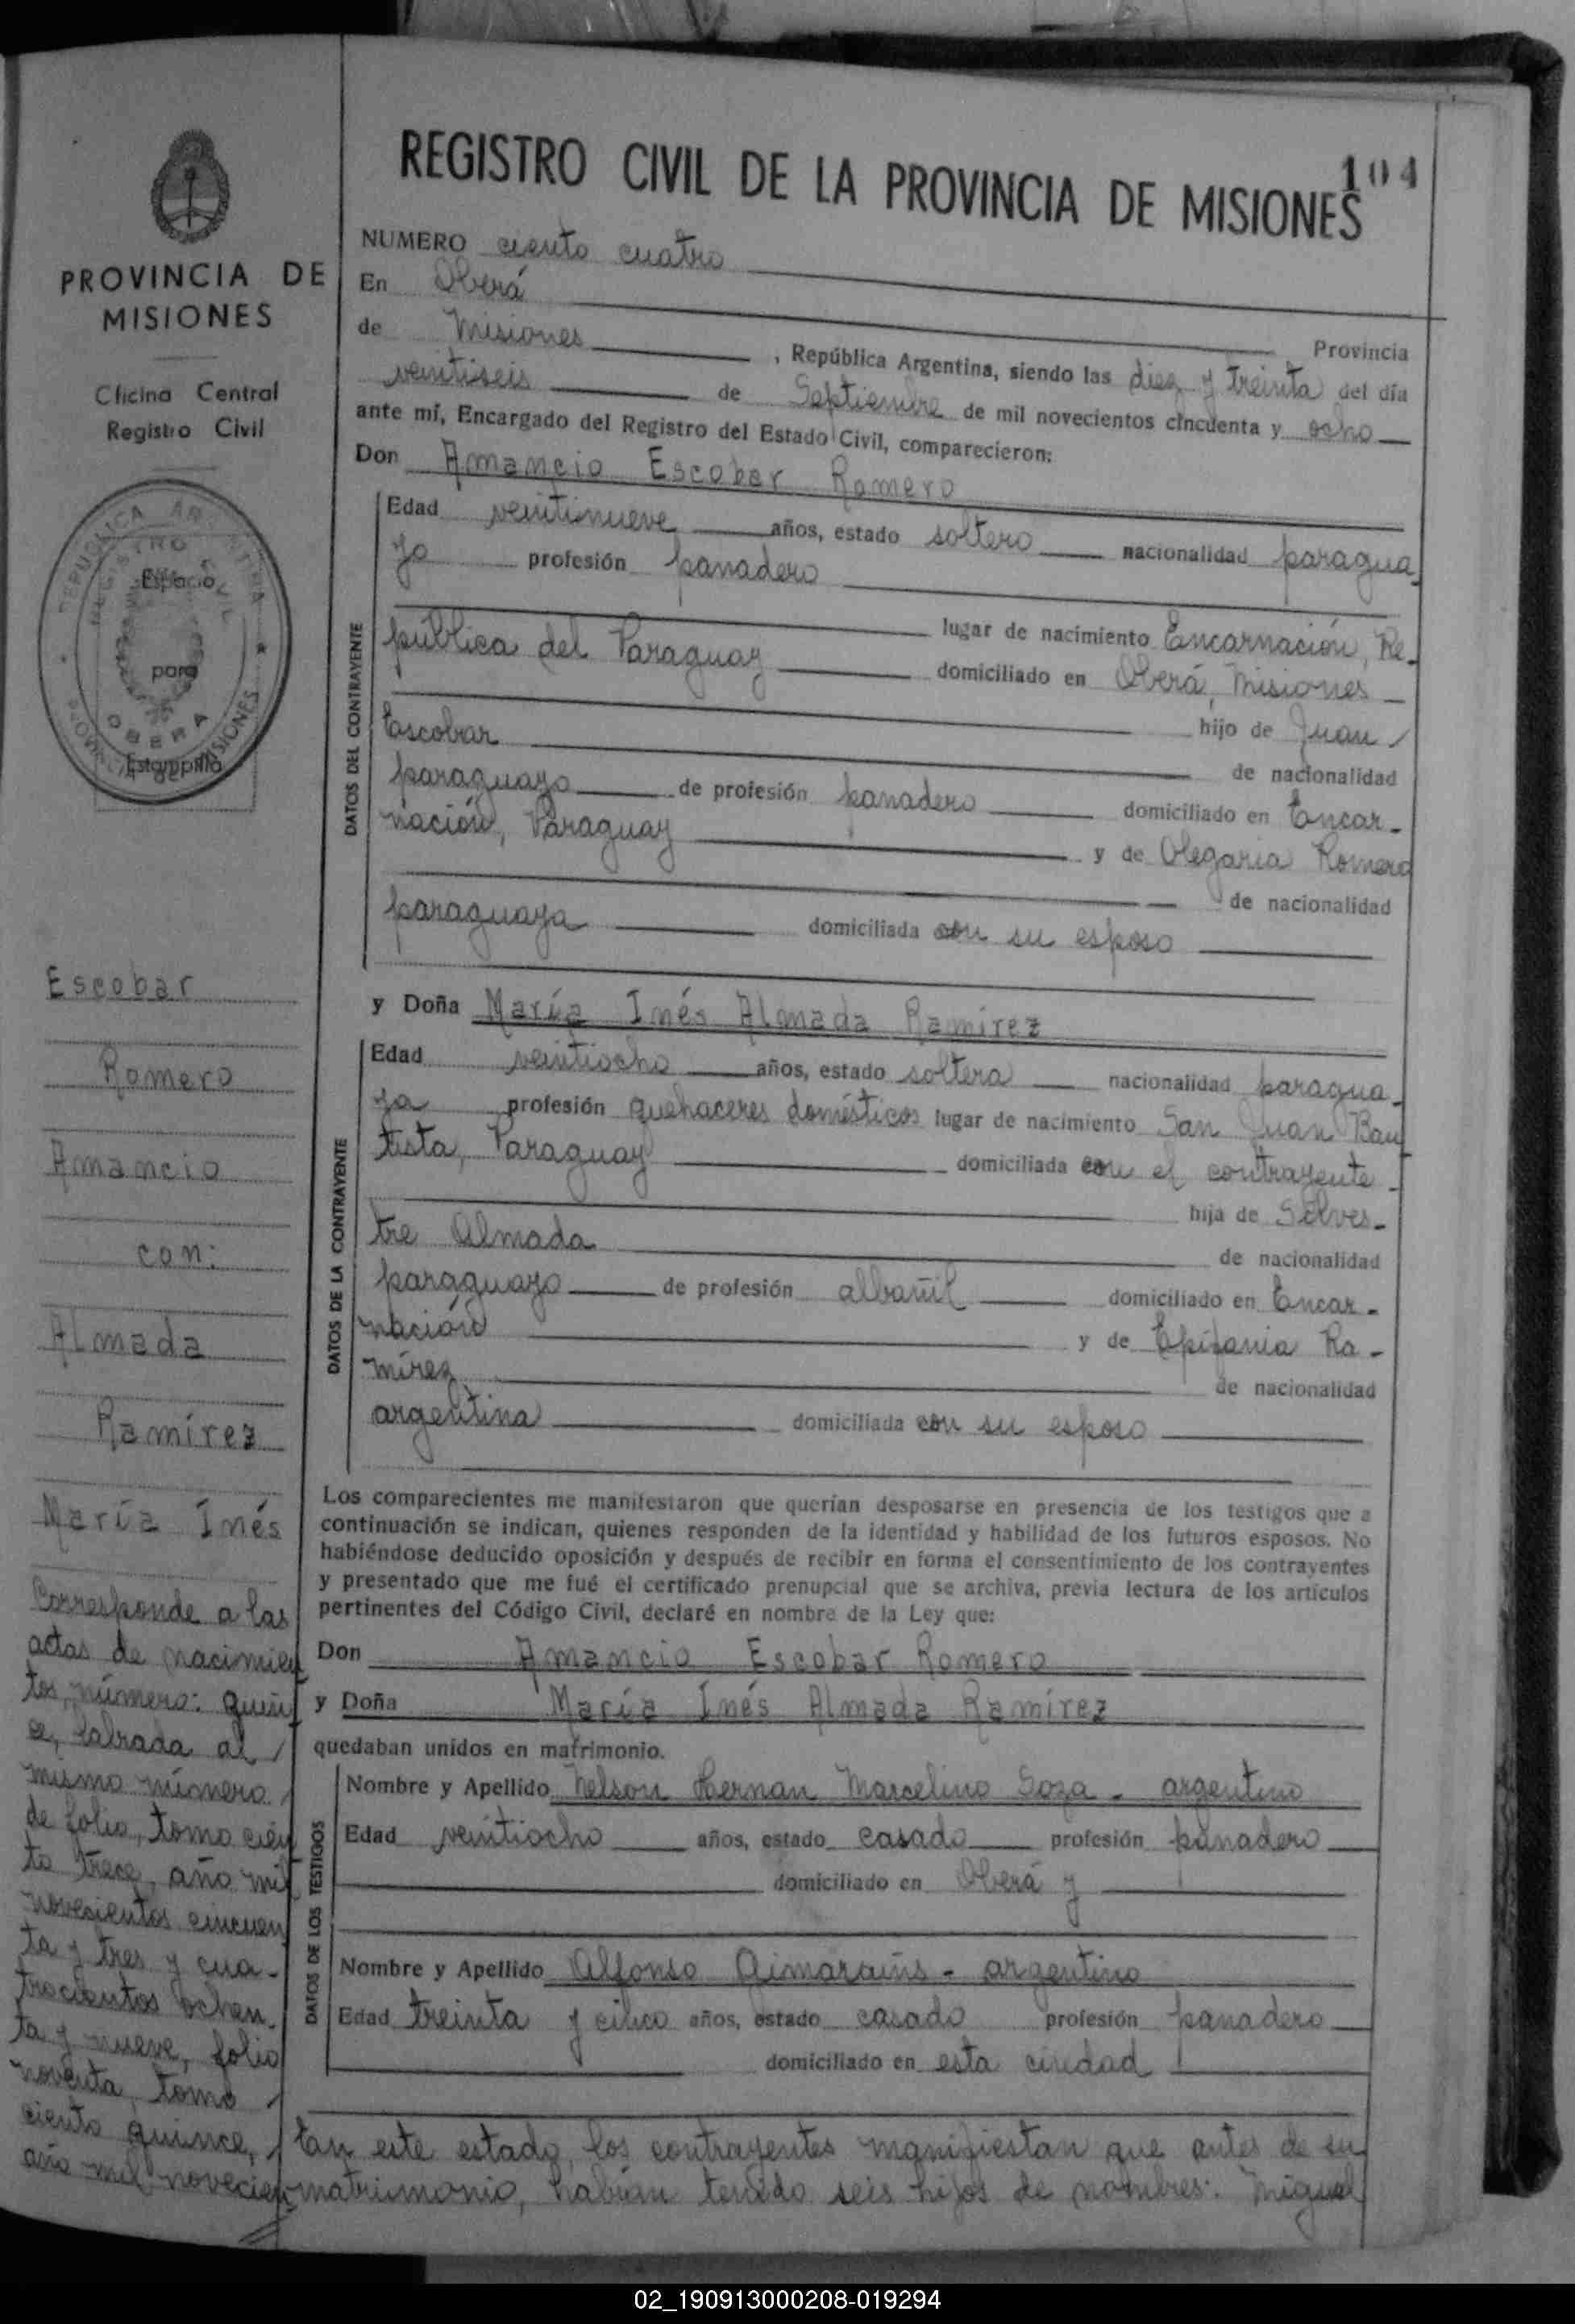 REGISTRO CIVIL DE LA PROVINCIA DE MISIONES
104
PROVINCIA DE
MISIONES
Oficina Central
Registro Civil
REPUBLICA ARGENTINA
REGISTRO CIVIL
Espacio
para
OBERA
Estampilla
PROVINCIA DE MISIONES
Escobar
Romero
Amancio
con:
Almada
Ramírez
María Inés
Corresponde a las
actas de nacimien
tos, número: quin
ce, labrada al /
mismo número /
de folio, tomo cien
to trece, año mil
novecientos cincuen
ta y tres y cua-
trocientos ochen
ta y nueve, folio
noventa, tomo /
ciento quince, /
año mil novecien
NUMERO ciento cuatro
En Oberá Provincia
de Misiones, República Argentina, siendo las diez y treinta del día
veintiseis de Septiembre de mil novecientos cincuenta y ocho
ante mí, Encargado del Registro del Estado Civil, comparecieron:
Don Amancio Escobar Romero
DATOS DEL CONTRAYENTE
Edad veintinueve años, estado soltero nacionalidad paragua-
yo profesión panadero
lugar de nacimiento Encarnación, Re-
pública del Paraguay domiciliado en Oberá, Misiones
hijo de Juan /
Escobar de nacionalidad
paraguayo de profesión panadero domiciliado en Encar-
nación, Paraguay y de Olegaria Romero
de nacionalidad
paraguaya domiciliada con su esposo
y Doña María Inés Almada Ramírez
DATOS DE LA CONTRAYENTE
Edad veintiocho años, estado soltera nacionalidad paragua-
ya profesión quehaceres domésticos lugar de nacimiento San Juan Bau
tista, Paraguay domiciliada con el contrayente
hija de Silves-
tre Almada de nacionalidad
paraguayo de profesión albañil domiciliado en Encar-
nación y de Epifania Ra-
mírez de nacionalidad
argentina domiciliada con su esposo
Los comparecientes me manifestaron que querían desposarse en presencia de los testigos que a
continuación se indican, quienes responden de la identidad y habilidad de los futuros esposos. No
habiéndose deducido oposición y después de recibir en forma el consentimiento de los contrayentes
y presentado que me fué el certificado prenupcial que se archiva, previa lectura de los artículos
pertinentes del Código Civil, declaré en nombre de la Ley que:
Don Amancio Escobar Romero
y Doña María Inés Almada Ramírez
quedaban unidos en matrimonio.
DATOS DE LOS TESTIGOS
Nombre y Apellido Nelson Hernan Marcelino Soza - argentino
Edad veintiocho años, estado casado profesión panadero
domiciliado en Oberá y
Nombre y Apellido Alfonso - argentino
Edad treinta y cinco años, estado casado profesión panadero
domiciliado en esta ciudad
En este estado, los contrayentes manifiestan que antes de su
matrimonio, habían tenido seis hijos de nombres: Miguel
02_190913000208-019294